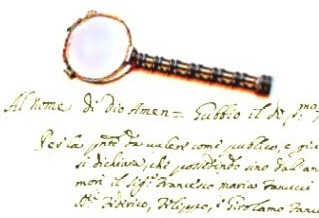 Al Nome di Dio Amen = Gubbio il dì p.mo
Per la pnte da valere come publico, e giu
si dichiara, che possedendo sino dall'an
mori il Sig.r Francesco maria Fanucci
Federico, Filippo, e Girolamo Fanu